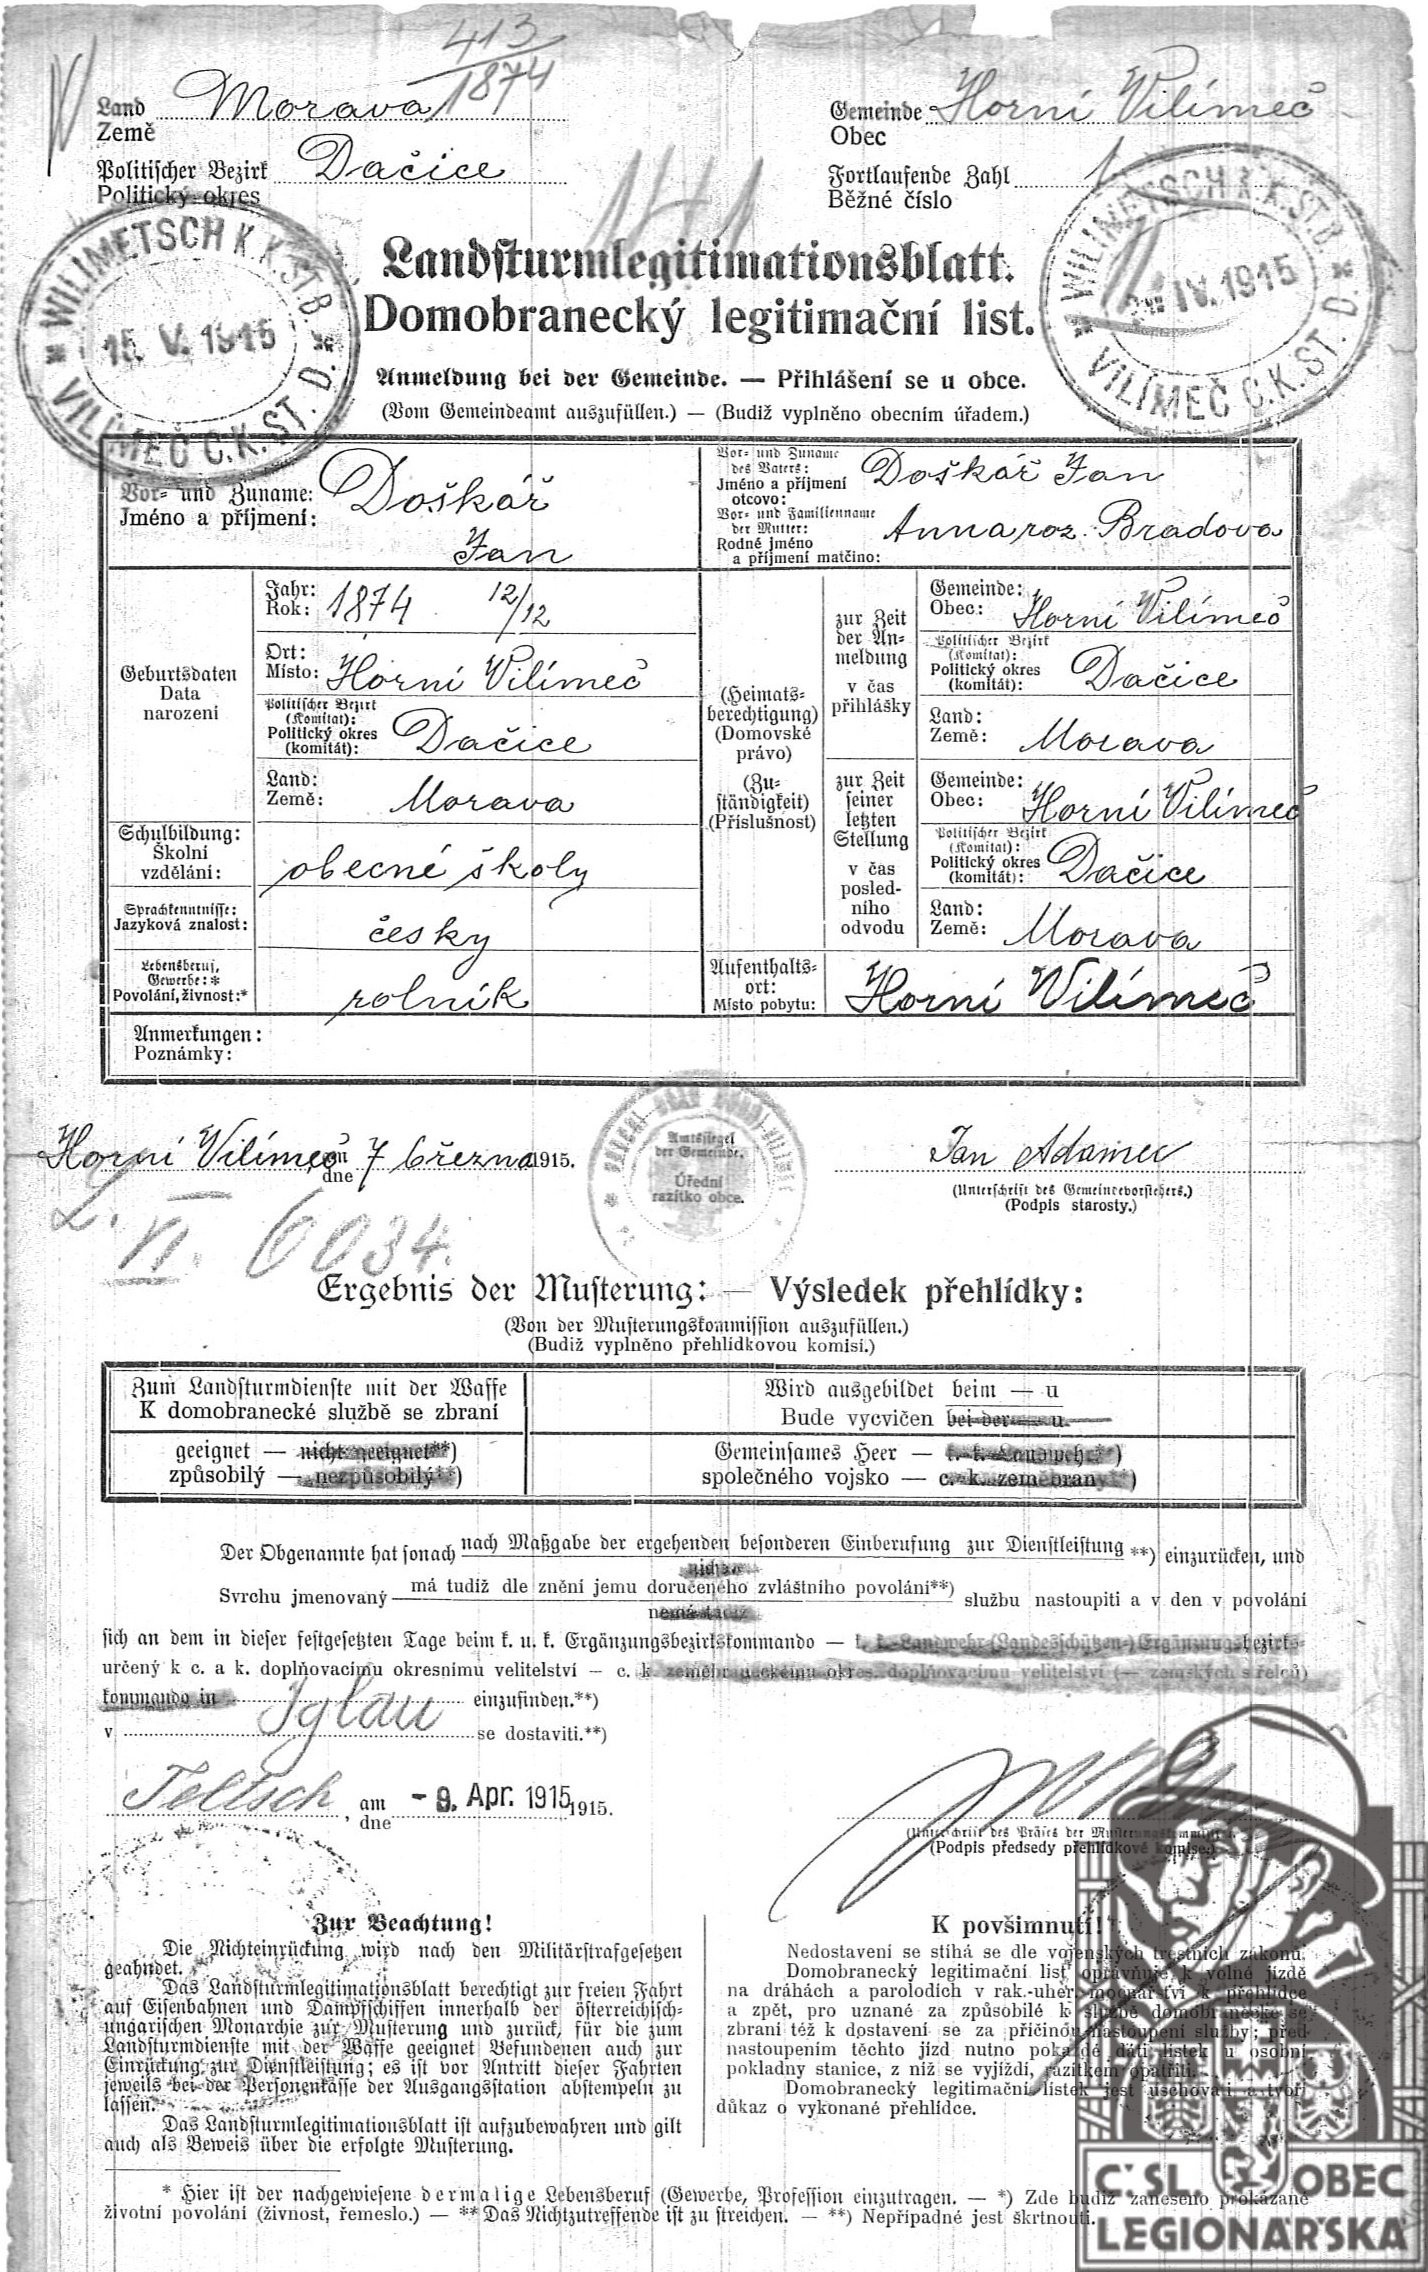 413
1874
Land Morava
Země
Gemeinde Horní Vilímeč
Obec
Politischer Bezirk Dačice
Politický okres
Fortlaufende Zahl 1
Běžné číslo
WILIMETSCH K.K.ST.B.
15. V. 1915
VILÍMEČ C.K.ST. D.
WILIMETSCH K.K.ST.B.
IV. 1915
VILÍMEČ C.K.ST. D.
Landsturmlegitimationsblatt.
Domobranecký legitimační list.
Anmeldung bei der Gemeinde. — Přihlášení se u obce.
(Vom Gemeindeamt auszufüllen.) — (Budiž vyplněno obecním úřadem.)
Vor- und Zuname: Doškář
Jméno a příjmení:
Jan
Vor- und Zuname
des Vaters: Doškář Jan
Jméno a příjmení
otcovo:
Vor- und Familienname
der Mutter: Anna roz. Bradova
Rodné jméno
a příjmení matčino:
Geburtsdaten
Data
narození
Jahr:
Rok: 1874 12/12
Ort:
Místo: Horní Vilímeč
Politischer Bezirk
(Komitat):
Politický okres
(komitát): Dačice
Land:
Země: Morava
Schulbildung:
Školní
vzdělání: obecné školy
Sprachkenntnisse:
Jazyková znalost: česky
Lebensberuf,
Gewerbe:*
Povolání, živnost:* rolník
(Heimats-
berechtigung)
(Domovské
právo)
(Zu-
ständigkeit)
(Příslušnost)
zur Zeit
der An-
meldung
v čas
přihlášky
Gemeinde:
Obec: Horní Vilímeč
Politischer Bezirk
(Komitat):
Politický okres
(komitát): Dačice
Land:
Země: Morava
zur Zeit
seiner
letzten
Stellung
v čas
posled-
ního
odvodu
Gemeinde:
Obec: Horní Vilímeč
Politischer Bezirk
(Komitat):
Politický okres
(komitát): Dačice
Land:
Země: Morava
Aufenthalts-
ort:
Místo pobytu: Horní Vilímeč
Anmerkungen:
Poznámky:
Horní Vilímeč am 7 března 1915.
dne
Amtssiegel
der Gemeinde.
Úřední
razítko obce.
Jan Adamec
(Unterschrift des Gemeindevorstehers.)
(Podpis starosty.)
6034.
Ergebnis der Musterung: — Výsledek přehlídky:
(Von der Musterungskommission auszufüllen.)
(Budiž vyplněno přehlídkovou komisí.)
Zum Landsturmdienste mit der Waffe
K domobranecké službě se zbraní
Wird ausgebildet beim — u
Bude vycvičen bei der — u.
geeignet — nicht geeignet**)
způsobilý — nezpůsobilý**)
Gemeinsames Heer — k. k. Landwehr**)
společného vojsko — c. k. zeměbrany**)
Der Obgenannte hat sonach nach Maßgabe der ergehenden besonderen Einberufung zur Dienstleistung **) einzurücken, und
nicht
Svrchu jmenovaný má tudíž dle znění jemu doručeného zvláštního povolání**) službu nastoupiti a v den v povolání
nemá tudíž
sich an dem in dieser festgesetzten Tage beim k. u. k. Ergänzungsbezirkskommando — k. k. Landwehr-(Landesschützen-) Ergänzungsbezirks-
určený k c. a k. doplňovacímu okresnímu velitelství — c. k. zeměbraneckému okres. doplňovacímu velitelství (— zemských střelců)
kommando in Iglau einzufinden.**)
v se dostaviti.**)
Teltsch, am - 9. Apr. 1915 1915.
dne
(Unterschrift des Präses der Musterungskommission.)
(Podpis předsedy přehlídkové komise.)
Zur Beachtung!
Die Nichteinrückung wird nach den Militärstrafgesetzen
geahndet.
Das Landsturmlegitimationsblatt berechtigt zur freien Fahrt
auf Eisenbahnen und Dampfschiffen innerhalb der österreichisch-
ungarischen Monarchie zur Musterung und zurück, für die zum
Landsturmdienste mit der Waffe geeignet Befundenen auch zur
Einrückung zur Dienstleistung; es ist vor Antritt dieser Fahrten
jeweils bei der Personenkasse der Ausgangsstation abstempeln zu
lassen.
Das Landsturmlegitimationsblatt ist aufzubewahren und gilt
auch als Beweis über die erfolgte Musterung.
K povšimnutí!
Nedostavení se stíhá se dle vojenských trestních zákonů.
Domobranecký legitimační list opravňuje k volné jízdě
na dráhách a parolodích v rak.-uher. mocnářství k přehlídce
a zpět, pro uznané za způsobilé k službě domobranecké se
zbraní též k dostavení se za příčinou nastoupení služby; před
nastoupením těchto jízd nutno pokaždé dáti lístek u osobní
pokladny stanice, z níž se vyjíždí, razítkem opatřiti.
Domobranecký legitimační lístek jest uschovati a tvoří
důkaz o vykonané přehlídce.
* Hier ist der nachgewiesene dermalige Lebensberuf (Gewerbe, Profession einzutragen. — *) Zde budiž zaneseno prokázané
životní povolání (živnost, řemeslo.) — ** Das Nichtzutreffende ist zu streichen. — **) Nepřípadné jest škrtnouti.
Č.SL. OBEC
LEGIONÁŘSKÁ